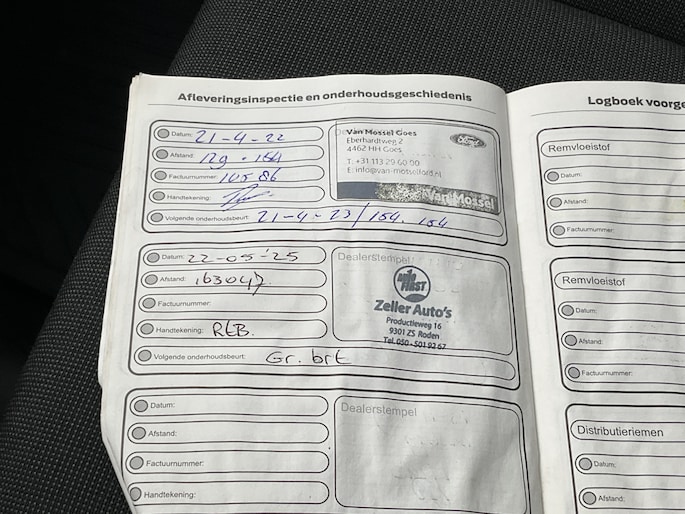 Afleveringsinspectie en onderhoudsgeschiedenis
Datum: 21-4-22
Afstand: 129.154
Factuurnummer:
Handtekening:
Volgende onderhoudsbeurt: 21-4-23/154.154
Van Mossel Goes
Eberhardtweg 2
4462 HH Goes
T: +31 113 29 60 00
E: info@van-mosselford.nl
Ford
Van Mossel
Datum: 22-05-'25
Afstand: 163047
Factuurnummer:
Handtekening:
Volgende onderhoudsbeurt: Gr. brt
Dealerstempel
FIRST
Zeller Auto's
Productieweg 16
9301 ZS Roden
Tel. 050 - 501 92 67
Datum:
Afstand:
Factuurnummer:
Handtekening:
Dealerstempel
Logboek voorge
Remvloeistof
Datum:
Afstand:
Factuurnummer:
Remvloeistof
Datum:
Afstand:
Factuurnummer:
Distributieriemen
Datum:
Afstand: